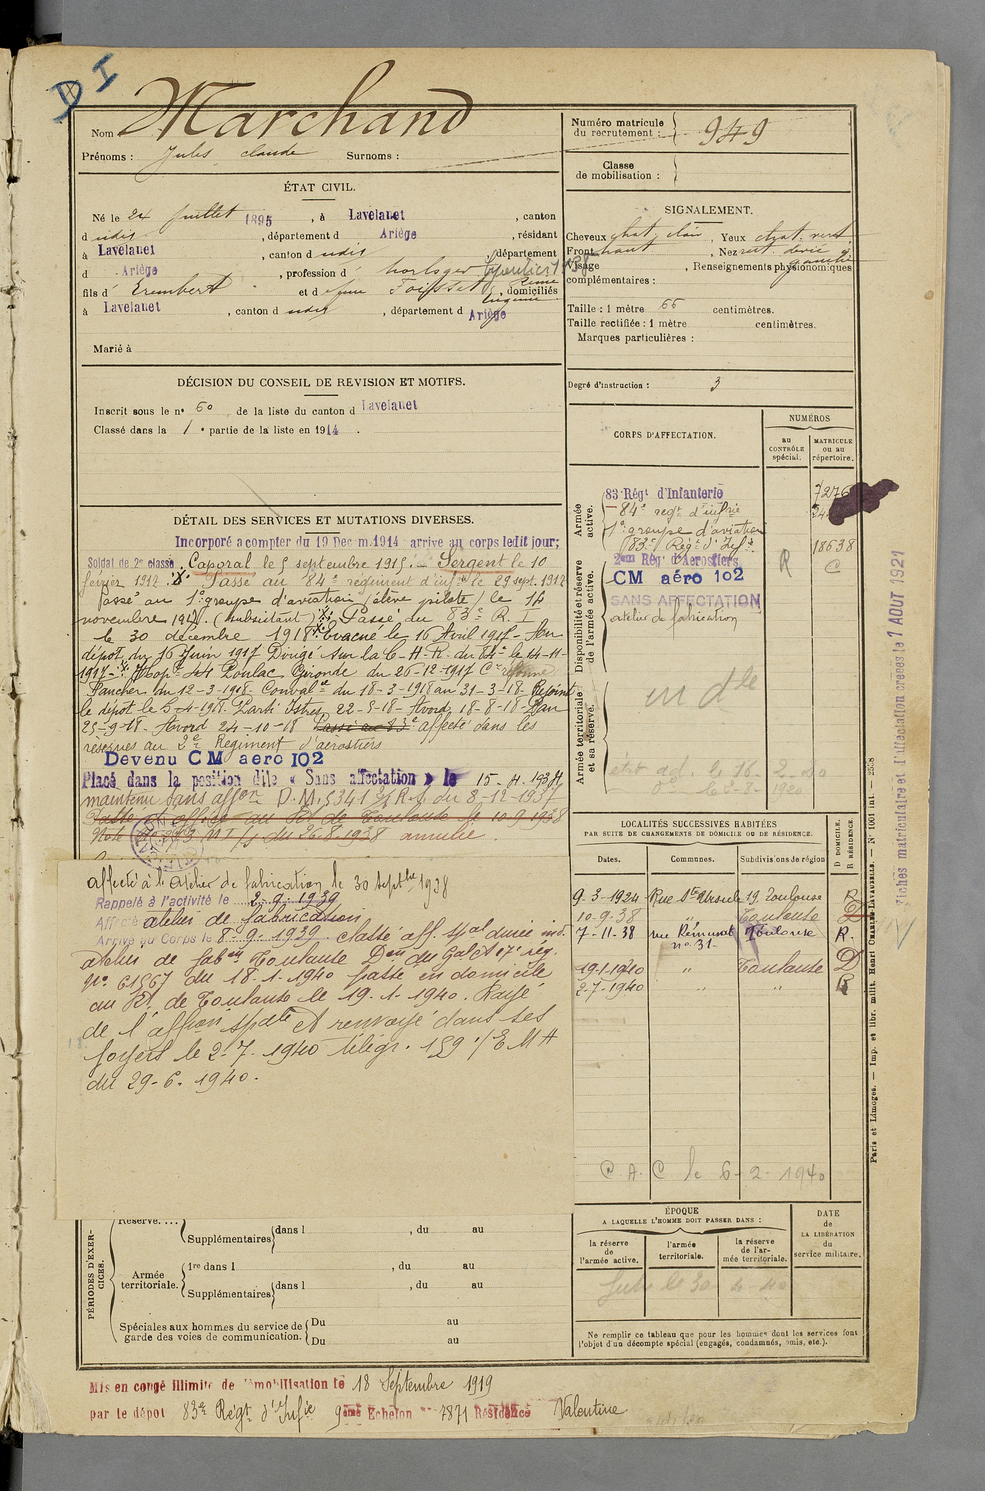 D I
Nom Marchand
Prénoms : Jules Claude Surnoms :
Numéro matricule du recrutement : 949
Classe de mobilisation :
ÉTAT CIVIL.
Né le 24 Juillet 1895, à Lavelanet, canton
d udit, département d Ariège, résidant
à Lavelanet, canton d udit, département
d Ariège, profession d horloger
fils d Erembert et d feue, domiciliés
à Lavelanet, canton d udit, département d Ariège
Marié à
SIGNALEMENT.
Cheveux chat. clair, Yeux chat. vert
Front haut, Nez rect. dévié g
Visage, Renseignements physionomiques gauche
complémentaires :
Taille : 1 mètre 66 centimètres.
Taille rectifiée : 1 mètre centimètres.
Marques particulières :
Degré d'instruction : 3
DÉCISION DU CONSEIL DE REVISION ET MOTIFS.
Inscrit sous le n° 60 de la liste du canton d Lavelanet
Classé dans la 1e partie de la liste en 1914.
DÉTAIL DES SERVICES ET MUTATIONS DIVERSES.
Incorporé a compter du 19 Decem. 1914 arrivé au corps ledit jour;
Soldat de 2e classe, Caporal le 5 septembre 1915. Sergent le 10
février 1917. Passé au 84e régiment d'inf. le 29 sept. 1917
Passé au 1e groupe d'aviation (élève pilote) le 14
novembre 1917. (subsistant) Passé du 83e R. I
le 30 décembre 1918. Evacué le 16 Avril 1917. Au
dépot du 16 Juin 1917 Dirigé sur la C.H.R. du 84e le 14-11-
1917. Hop. 44 Gironde du 26-12-1917
du 12-3-1918. Conval ce du 18-3-1918 au 31-3-18. Rejoint
le dépot le 5-4-1918. Parti Istres 22-5-18. Avord 18-8-18. Pau
25-9-18. Avord 24-10-18 Passé au 83e affecté dans les
réserves au 2e Régiment d'aérostiers
Devenu CM aero 102
Placé dans la position dite « Sans affectation » le 15-4-1934
maintenu sans affon D.M. 5341 du 8-12-1937
au de Toulouse le 10-9-1938
Note du 26-8-1938 annulée.
affecté à l'atelier de fabrication le 30 Septbre 1938
Rappelé à l'activité le 2-9-1939
Affecté atelier de fabrication
Arrivé au Corps le 8-9-1939. Classé aff. spal durée ind.
atelier de fabon Toulouse
N° 61567 du 18-1-1940 passe en domicile
au de Toulouse le 19-1-1940. Rayé
de l'affon spale et renvoyé dans ses
foyers le 2-7-1940 télégr. 159 / E M A
du 29-6-1940.
CORPS D'AFFECTATION.
NUMÉROS
au CONTRÔLE spécial.
MATRICULE ou au répertoire.
Armée active.
83 Régt d'Infanterie 7276
84e regt d'infrie
1e groupe d'aviation
(83e) Régt d'Infie 18638
Disponibilité et réserve de l'armée active.
2eme Rég' d'Aerostiers R C
CM aéro 102
SANS AFFECTATION
atelier de fabrication
Armée territoriale et sa réserve.
LOCALITÉS SUCCESSIVES HABITÉES
PAR SUITE DE CHANGEMENTS DE DOMICILE OU DE RÉSIDENCE.
Dates. Communes. Subdivisions de région D DOMICILE. R RÉSIDENCE.
9-3-1924 Rue Ste Ursule 19 Toulouse R
10-9-38 " Toulouse D
7-11-38 rue Rémusat n° 31 Toulouse R.
19-1-1940 " Toulouse D
2-7-1940 " " R
C.A.C le 6-2-1940
ÉPOQUE
A LAQUELLE L'HOMME DOIT PASSER DANS :
la réserve de l'armée active.
l'armée territoriale.
la réserve de l'armée territoriale.
DATE de LA LIBÉRATION du service militaire.
Ne remplir ce tableau que pour les hommes dont les services font l'objet d'un décompte spécial (engagés, condamnés, omis, etc.).
PÉRIODES D'EXERCICES.
Réserve....
Supplémentaires dans l , du au
Armée territoriale.
1re dans l , du au
Supplémentaires dans l , du au
Spéciales aux hommes du service de garde des voies de communication.
Du au
Du au
Mis en congé illimité de démobilisation le 18 Septembre 1919
par le dépot 83e Régt d'Infie 9eme Echelon 7871 Résidence Valentine
Fiches matriculaire et d'affectation créées le 7 AOUT 1921
Paris et Limoges. — Imp. et libr. milit. Henri CHARLES-LAVAUZELLE. — N° 1001 int. — 2558